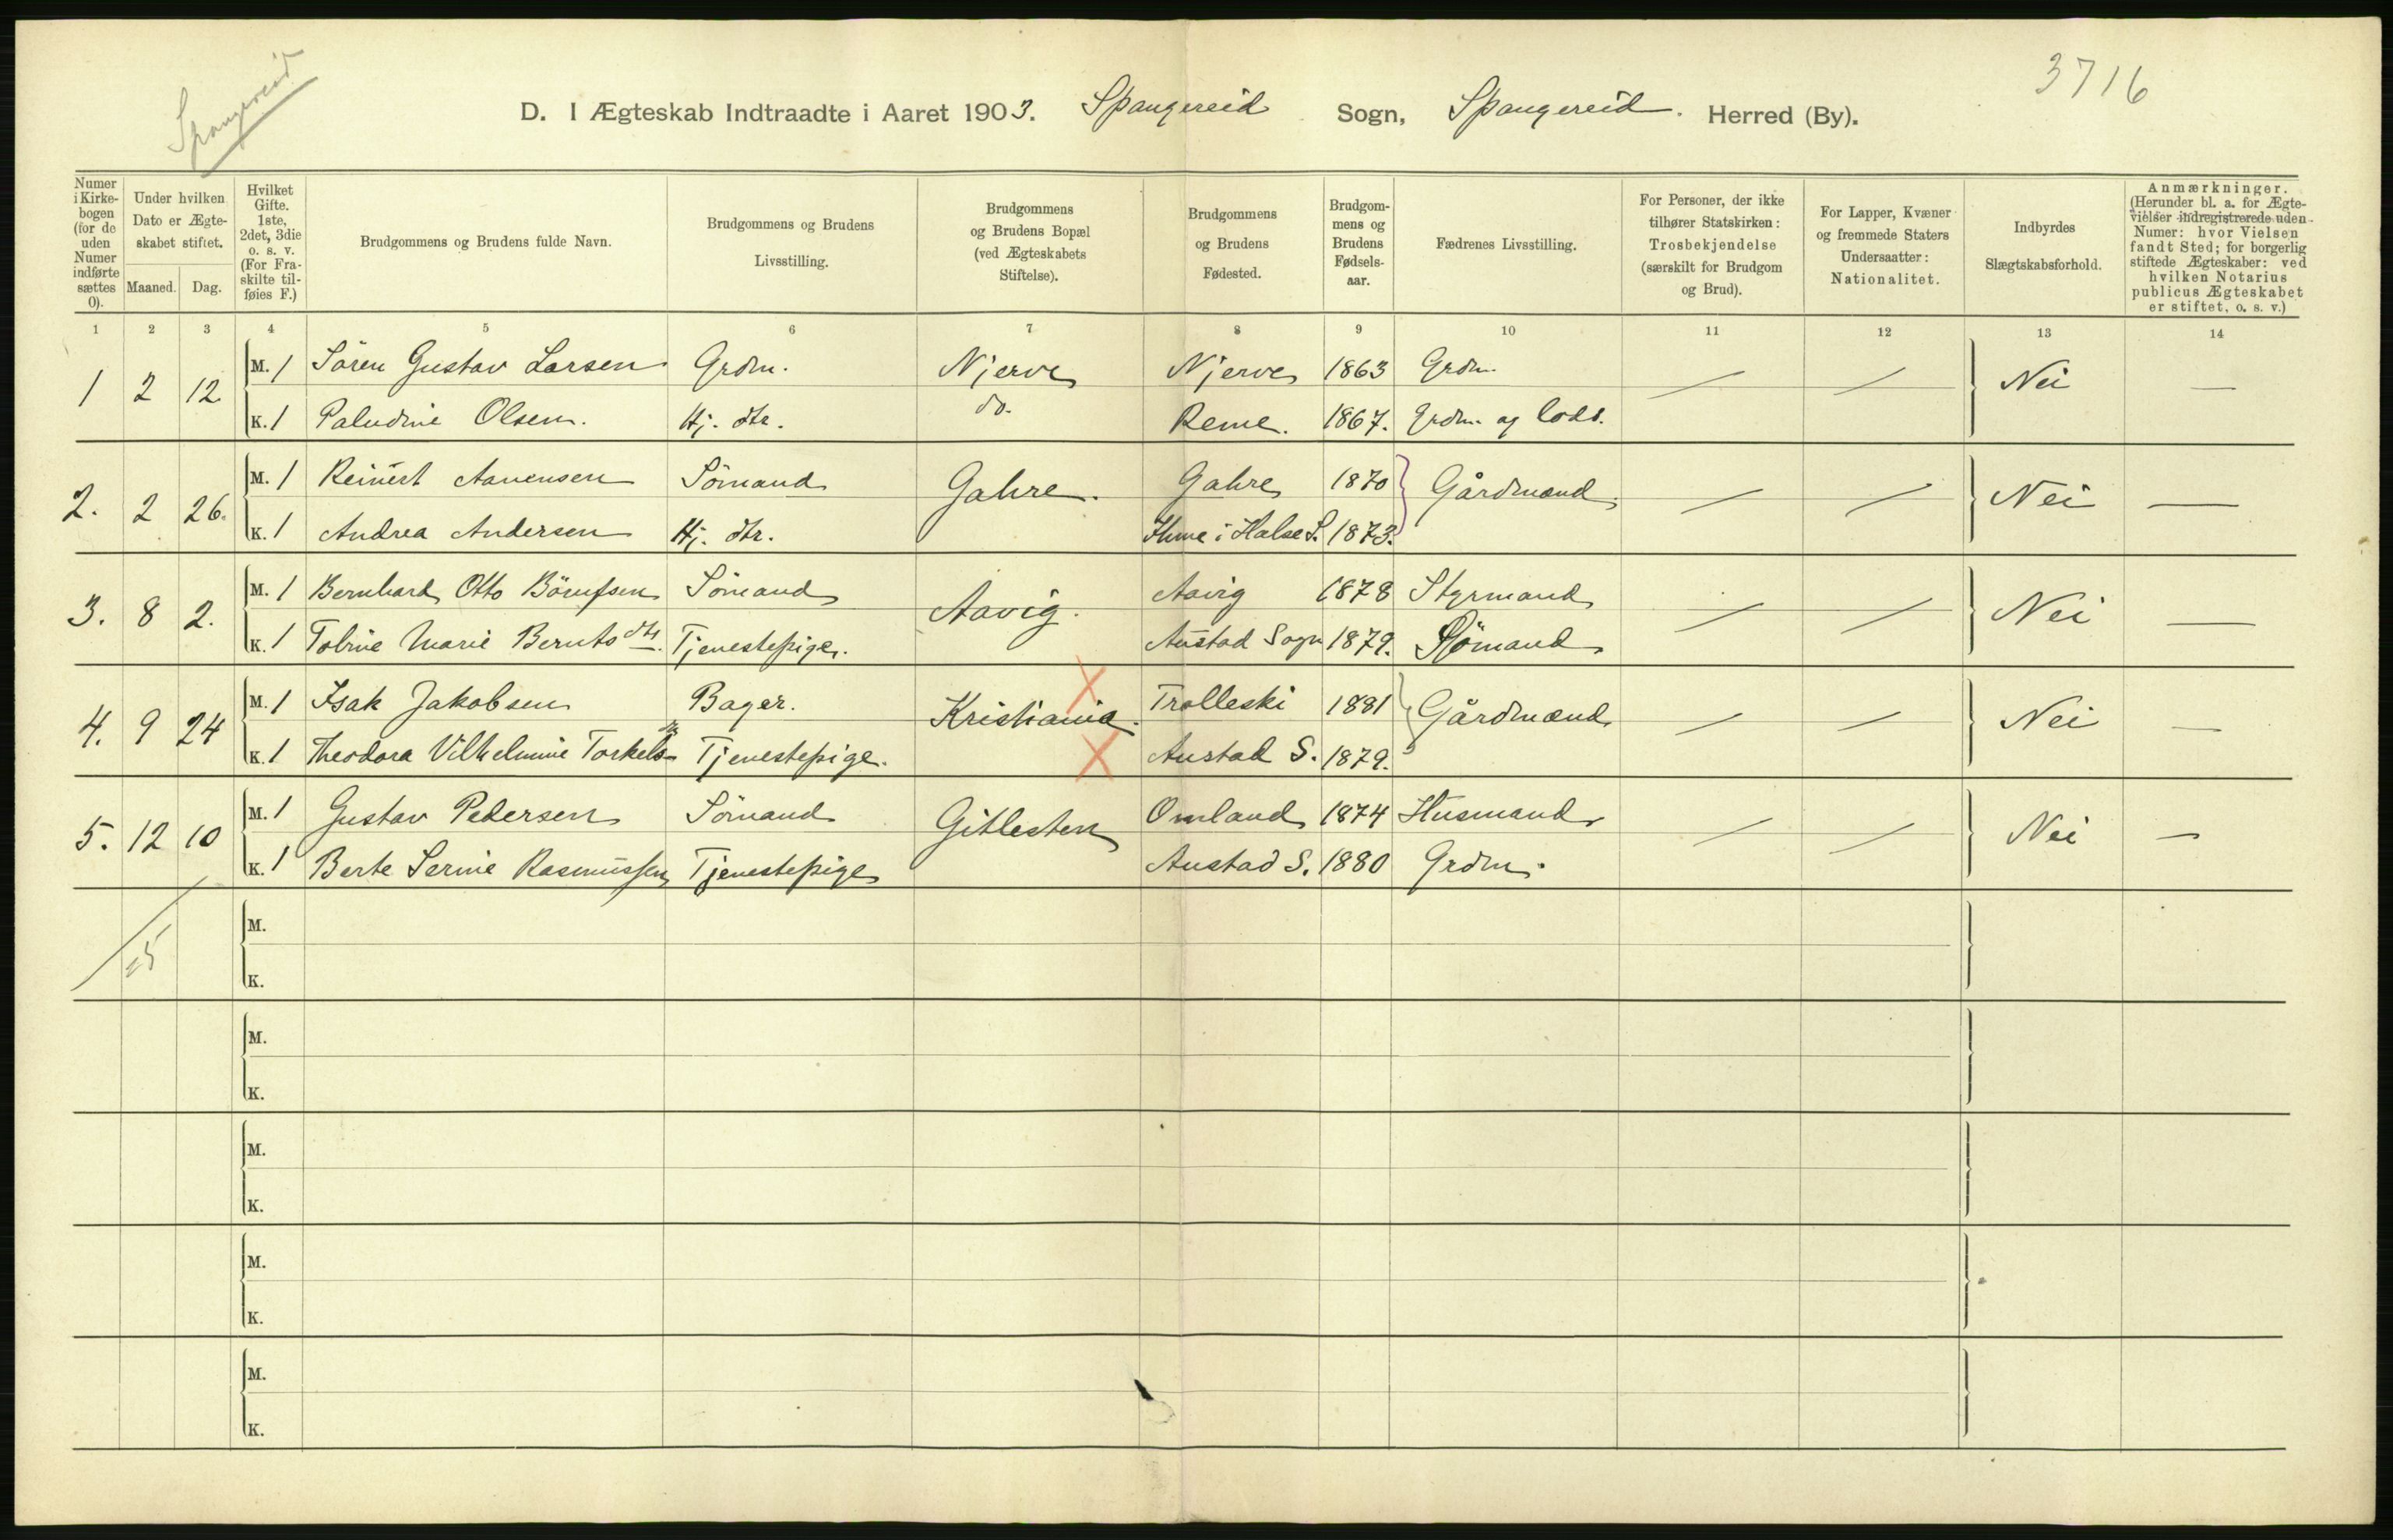 Spangereid
3716
D. I Ægteskab Indtraadte i Aaret 1903. Spangereid Sogn, Spangereid. Herred (By).
Numer i Kirkebogen (for de uden Numer indførte sættes 0).
Under hvilken Dato er Ægteskabet stiftet.
Maaned. Dag.
Hvilket Gifte. 1ste, 2det, 3die o. s. v. (For Fraskilte tilføies F.)
Brudgommens og Brudens fulde Navn.
Brudgommens og Brudens Livsstilling.
Brudgommens og Brudens Bopæl (ved Ægteskabets Stiftelse).
Brudgommens og Brudens Fødested.
Brudgommens og Brudens Fødselsaar.
Fædrenes Livsstilling.
For Personer, der ikke tilhører Statskirken: Trosbekjendelse (særskilt for Brudgom og Brud).
For Lapper, Kvæner og fremmede Staters Undersaatter: Nationalitet.
Indbyrdes Slægtskabsforhold.
Anmærkninger. (Herunder bl. a. for Ægtevielser indregistrerede uden Numer: hvor Vielsen fandt Sted; for borgerlig stiftede Ægteskaber: ved hvilken Notarius publicus Ægteskabet er stiftet, o. s. v.)
1 2 3 4 5 6 7 8 9 10 11 12 13 14
1 2 12. M. 1 Sören Gustav Larsen Grdm. Njerve Njerve 1863 Grdm. — — Nei —
K. 1 Paludine Olsen. Hj. dtr. do. Reme. 1867. Grdm. og lods.
2. 2 26. M. 1 Reinert Aanensen Sömand Gahre. Gahre 1870 Gårdmænd — — Nei —
K. 1 Andrea Andersen Hj. dtr. Ihme i Halse S. 1873.
3. 8 2. M. 1 Bernhard Otto Börufsen Sömand Aavig. Aavig 1878 Styrmand — — Nei —
K. 1 Tobine Marie Bernts dtr. Tjenestepige. Austad Sogn 1879. Sjömand
4. 9 24 M. 1 Isak Jakobsen Bager. Kristiania. Trolleski 1881 Gårdmænd — — Nei —
K. 1 Theodora Vilhelmine Torkels Tjenestepige. Austad S. 1879.
5. 12 10 M. 1 Gustav Pedersen Sömand Gitlesten Omland 1874 Husmand — — Nei —
K. 1 Berte Serine Rasmussen Tjenestepige Austad S. 1880 Grdm.
M.
K.
M.
K.
M.
K.
M.
K.
M.
K.